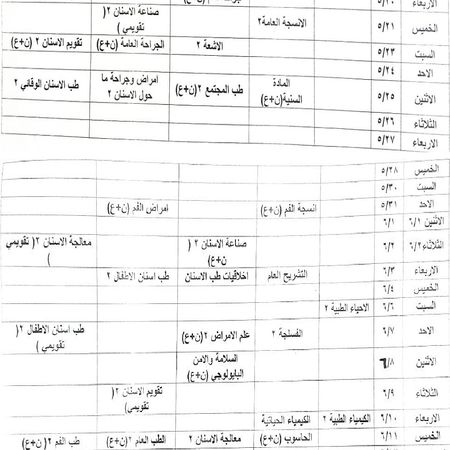 الاربعاء ٥/٢٠
الخميس ٥/٢١ الانسجة العامة٢ صناعة الاسنان ٢ ( تقويمي )
السبت ٥/٢٣ الاشعة ٢ الجراحة العامة (ن+ع) تقويم الاسنان ٢ (ن+ع)
الاحد ٥/٢٤
الاثنين ٥/٢٥ المادة السنية(ن+ع) طب المجتمع ٢(ن+ع) امراض وجراحة ما حول الاسنان ٢ طب الاسنان الوقائي ٢
الثلاثاء ٥/٢٦
الاربعاء ٥/٢٧
الخميس ٥/٢٨
السبت ٥/٣٠
الاحد ٥/٣١ انسجة الفم (ن+ع) امراض الفم (ن+ع)
الاثنين ٦/١ ٦/١
الثلاثاء٦/٢ ٦/٢ صناعة الاسنان ٢ ( ن+ع) معالجة الاسنان ٢( تقويمي )
الاربعاء ٦/٣ التشريح العام اخلاقيات طب الاسنان طب اسنان الاطفال ٢
الخميس ٦/٤
السبت ٦/٦ الاحياء الطبية ٢
الاحد ٦/٧ الفسلجة ٢ علم الامراض ٢(ن+ع) طب اسنان الاطفال ٢( تقويمي )
الاثنين ٦/٨ السلامة والامن البايولوجي (ن+ع)
الثلاثاء ٦/٩ تقويم الاسنان ٢( تقويمي)
الاربعاء ٦/١٠ الكيمياء الطبية ٢ الكيمياء الحياتية
الخميس ٦/١١ الحاسوب (ن+ع) معالجة الاسنان ٢ الطب العام ٢(ن+ع) طب الفم ٢( ن+ع)